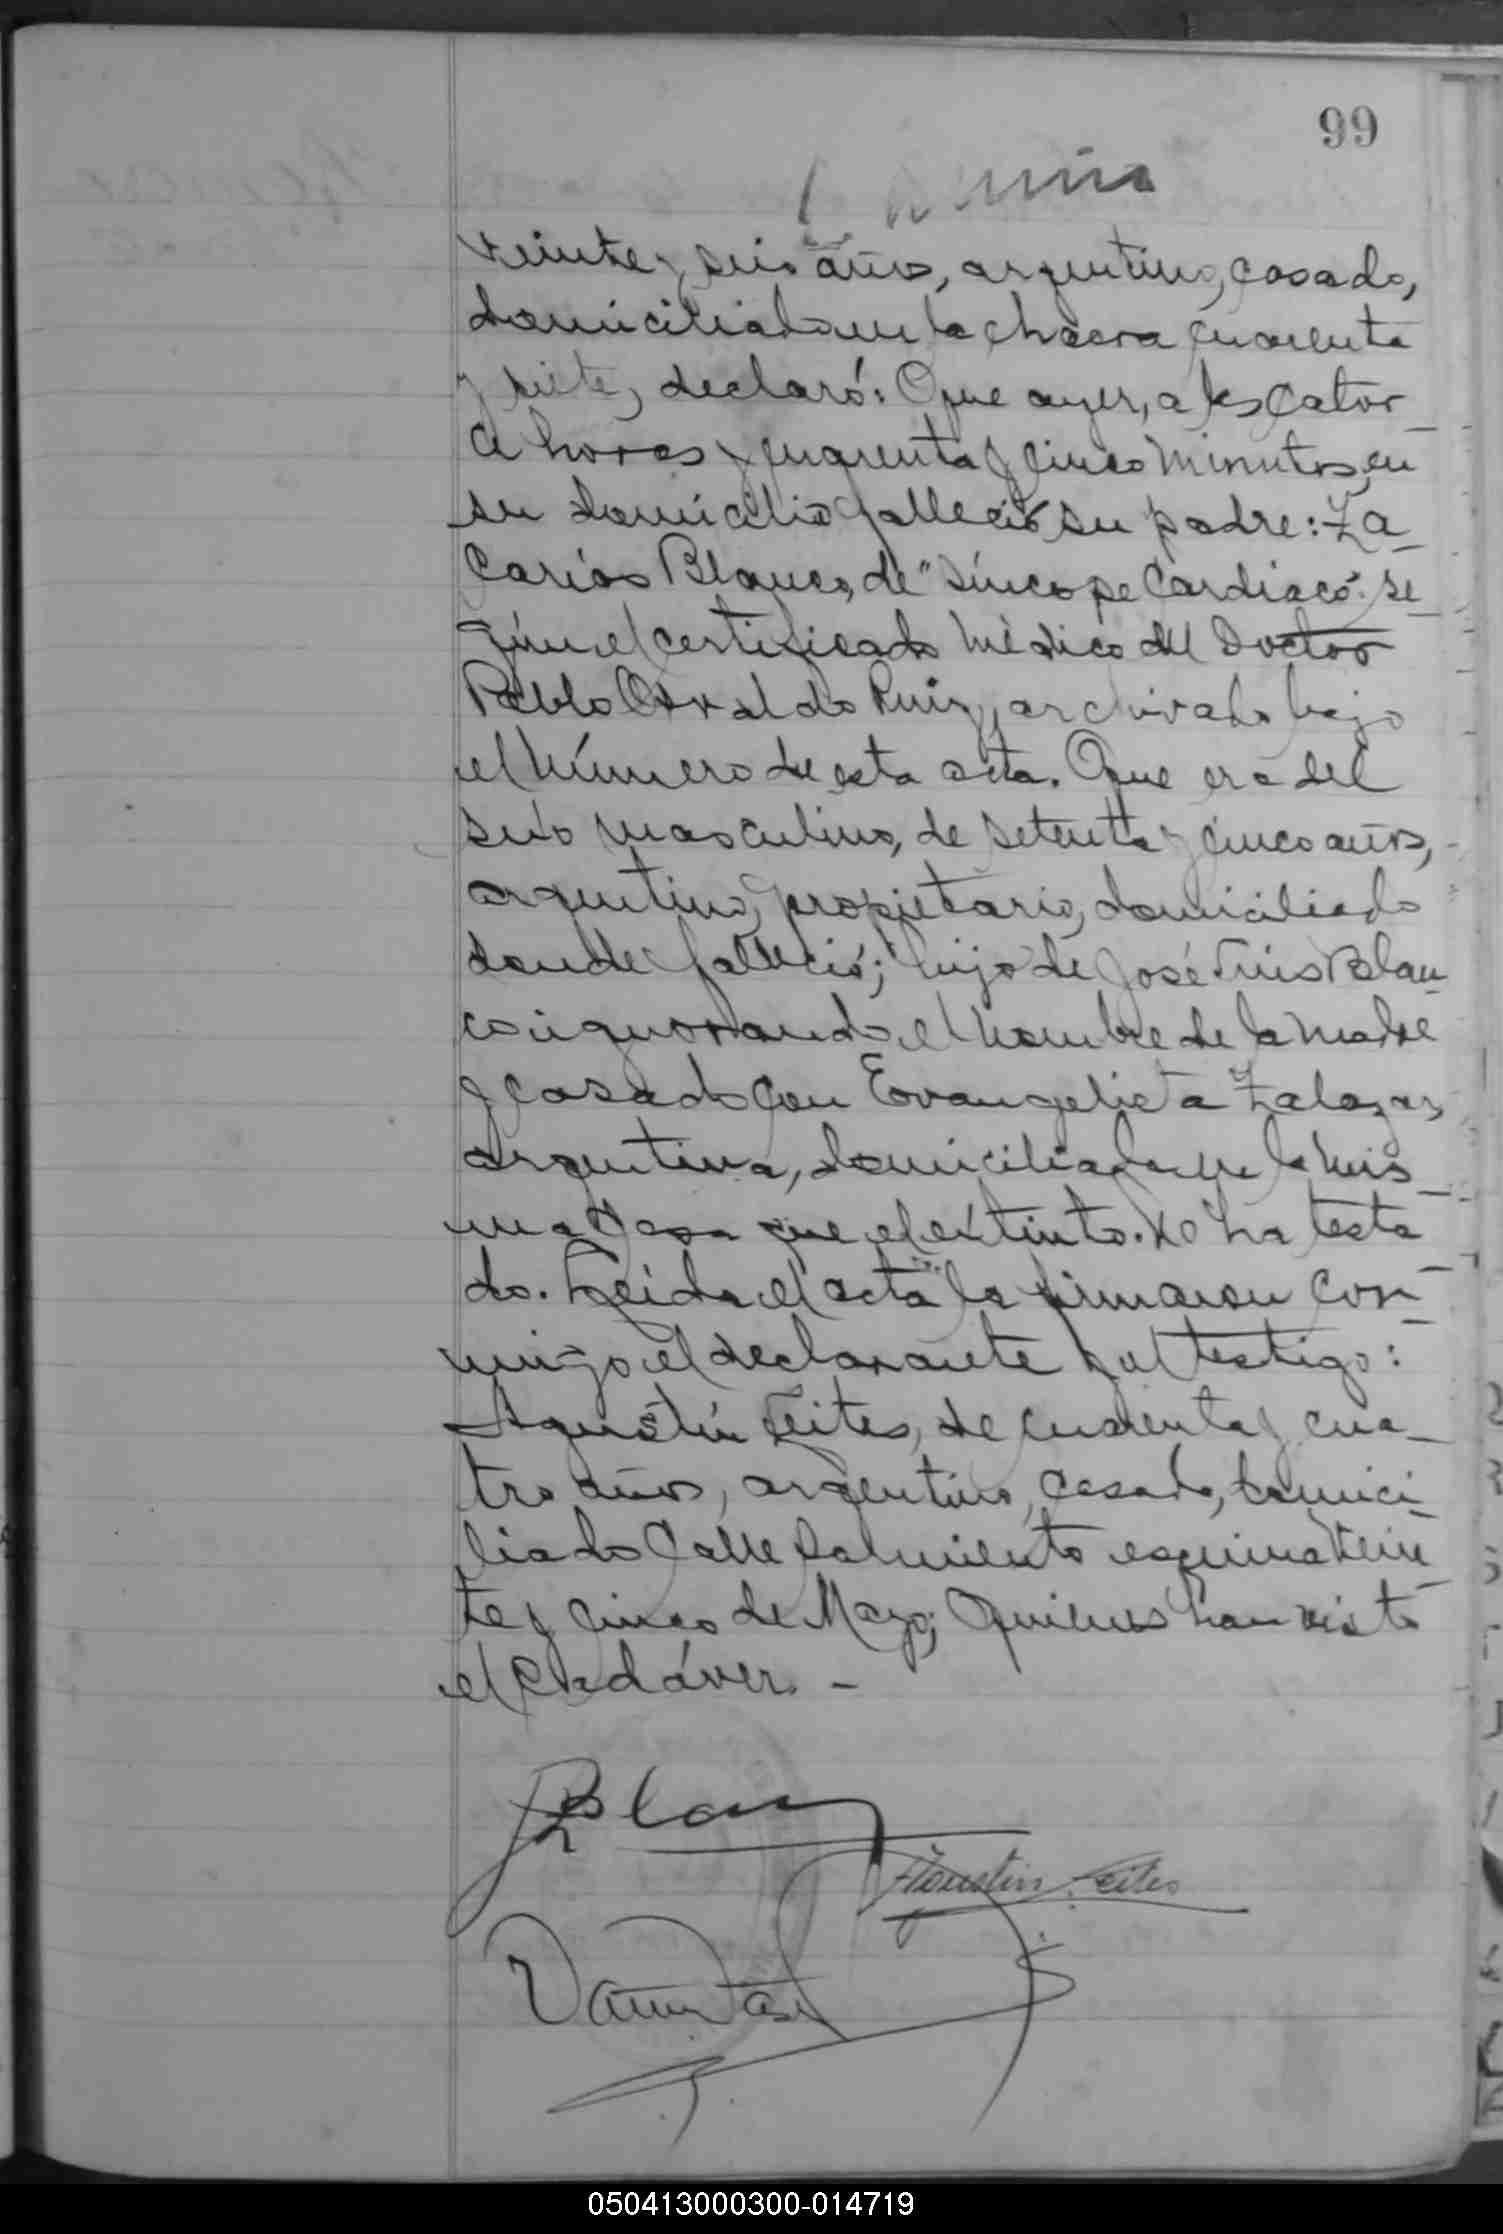 99
veinte y seis años, argentino, casado,
domiciliado en la chacra cuarenta
y siete, declaró: Que ayer, a las cator_
ce horas y cuarenta y cinco minutos, en
su domicilio falleció su padre: Za_
carías Blanco, de "síncope cardíaco". se_
gún el certificado médico del Doctor
Pablo Osvaldo Ruiz, archivado bajo
el número de esta acta. Que era del
sexo masculino, de setenta y cinco años,
argentino, propietario, domiciliado
donde falleció; hijo de José Luis Blan_
co ignorando el nombre de la madre
y casado con Evangelista Zalazar,
argentina, domiciliada en la mis_
ma casa que el extinto. No ha testa_
do. Leída el acta la firmaron con_
migo el declarante y el testigo:
Agustín Leites, de cuarenta y cua_
tro años, argentino, casado, domici_
liado calle Sarmiento esquina Vein_
te y cinco de Mayo; Quienes han visto
el cadáver. _
Blanco
Agustin Leites
050413000300-014719